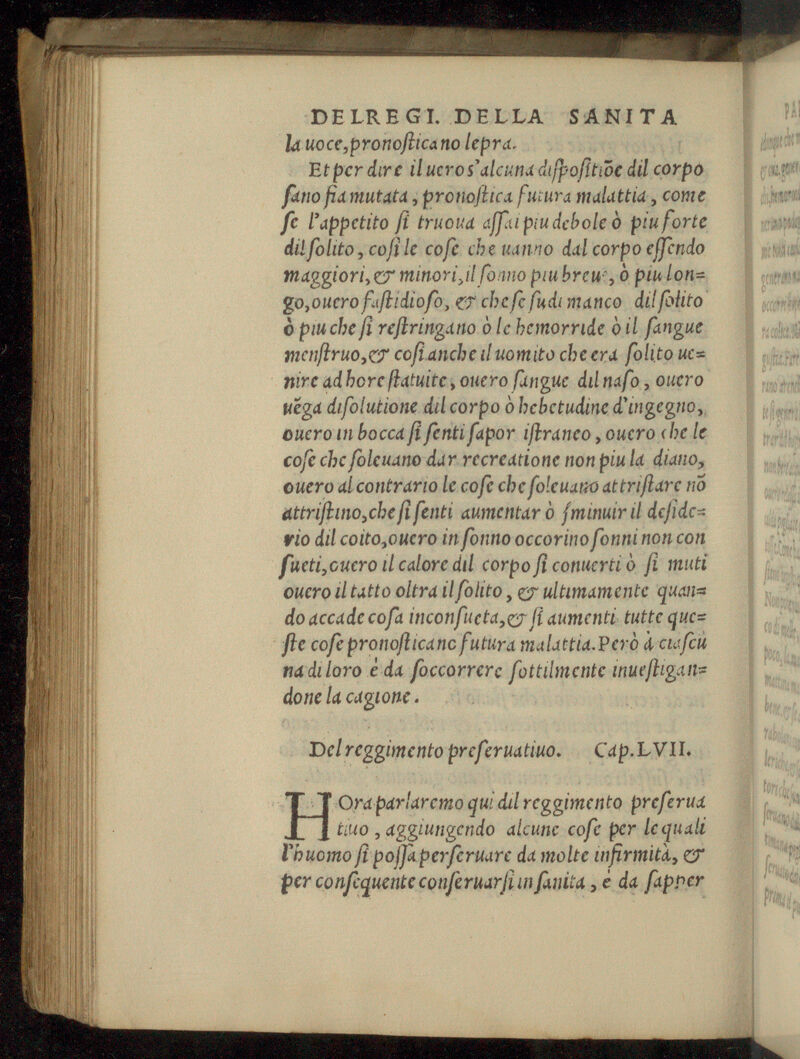 DEL REGI. DELLA SANITA
la uoce, pronoſticano lepra.
Et per dire il uero s'alcuna diſpoſitiõe dil corpo
ſano ſia mutata, pronoſtica futura malattia, come
ſe l'appetito ſi truoua aſſai piu debole ò piu forte
dil ſolito, coſi le coſe che uanno dal corpo eſſendo
maggiori, & minori, il ſonno piu breue, ò piu lon=
go, ouero faſtidioſo, & che ſe ſudi manco dil ſolito
ò piu che ſi reſtringano ò le hemorride ò il ſangue
menſtruo, & coſi anche il uomito che era ſolito ue=
nire ad hore ſtatuite, ouero ſangue dil naſo, ouero
uẽga diſolutione dil corpo ò hebetudine d'ingegno,
ouero in bocca ſi ſenti ſapor iſtraneo, ouero che le
coſe che ſoleuano dar recreatione non piu la diano,
ouero al contrario le coſe che ſoleuano attriſtare nõ
attriſtino, che ſi ſenti aumentar ò ſminuir il deſide=
rio dil coito, ouero in ſonno occorino ſonni non con
ſueti, ouero il calore dil corpo ſi conuerti ò ſi muti
ouero il tatto oltra il ſolito, & ultimamente quan=
do accade coſa inconſueta, & ſi aumenti tutte que=
ſte coſe pronoſticano futura malattia. Però à ciaſcũ
na di loro è da ſoccorrere ſottilmente inueſtigan=
done la cagione.
Del reggimento preſeruatiuo. Cap. LVII.
HOra parlaremo qui dil reggimento preſerua
tiuo, aggiungendo alcune coſe per le quali
l'huomo ſi poſſa perſeruare da molte infirmità, &
per conſequente conſeruarſi in ſanita, è da ſapper